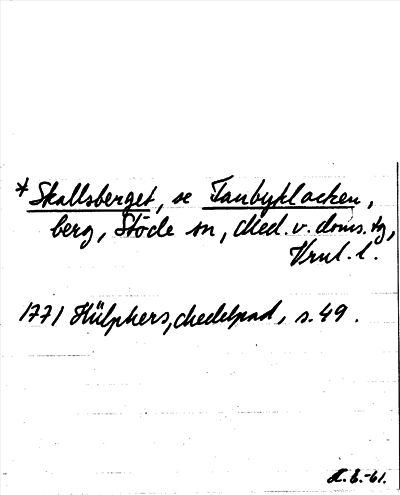 * Skallsberget, se Fanbyklacken,
berg, Stöde sn, Med. v. doms. tg,
Vrnl. l.
1771 Hülphers, Medelpad, s. 49.
-61.